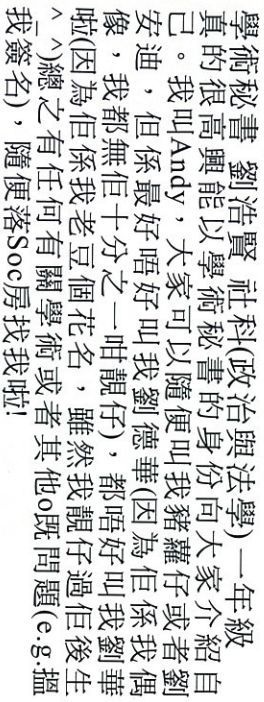 學術秘書 劉浩賢 社科(政治與法學)一年級
真的很高興能以學術秘書的身份向大家介紹自
己。我叫Andy，大家可以隨便叫我豬蘿仔或者劉
安迪，但係最好唔好叫我劉德華(因為佢係我偶
像，我都無佢十分之一咁靚仔)，都唔好叫我劉華
啦(因為佢係我老豆個花名，雖然我靚仔過佢後生
^_^)總之有任何有關學術或者其他o既問題(e.g.搵
我簽名)，隨便落Soc房找我啦!